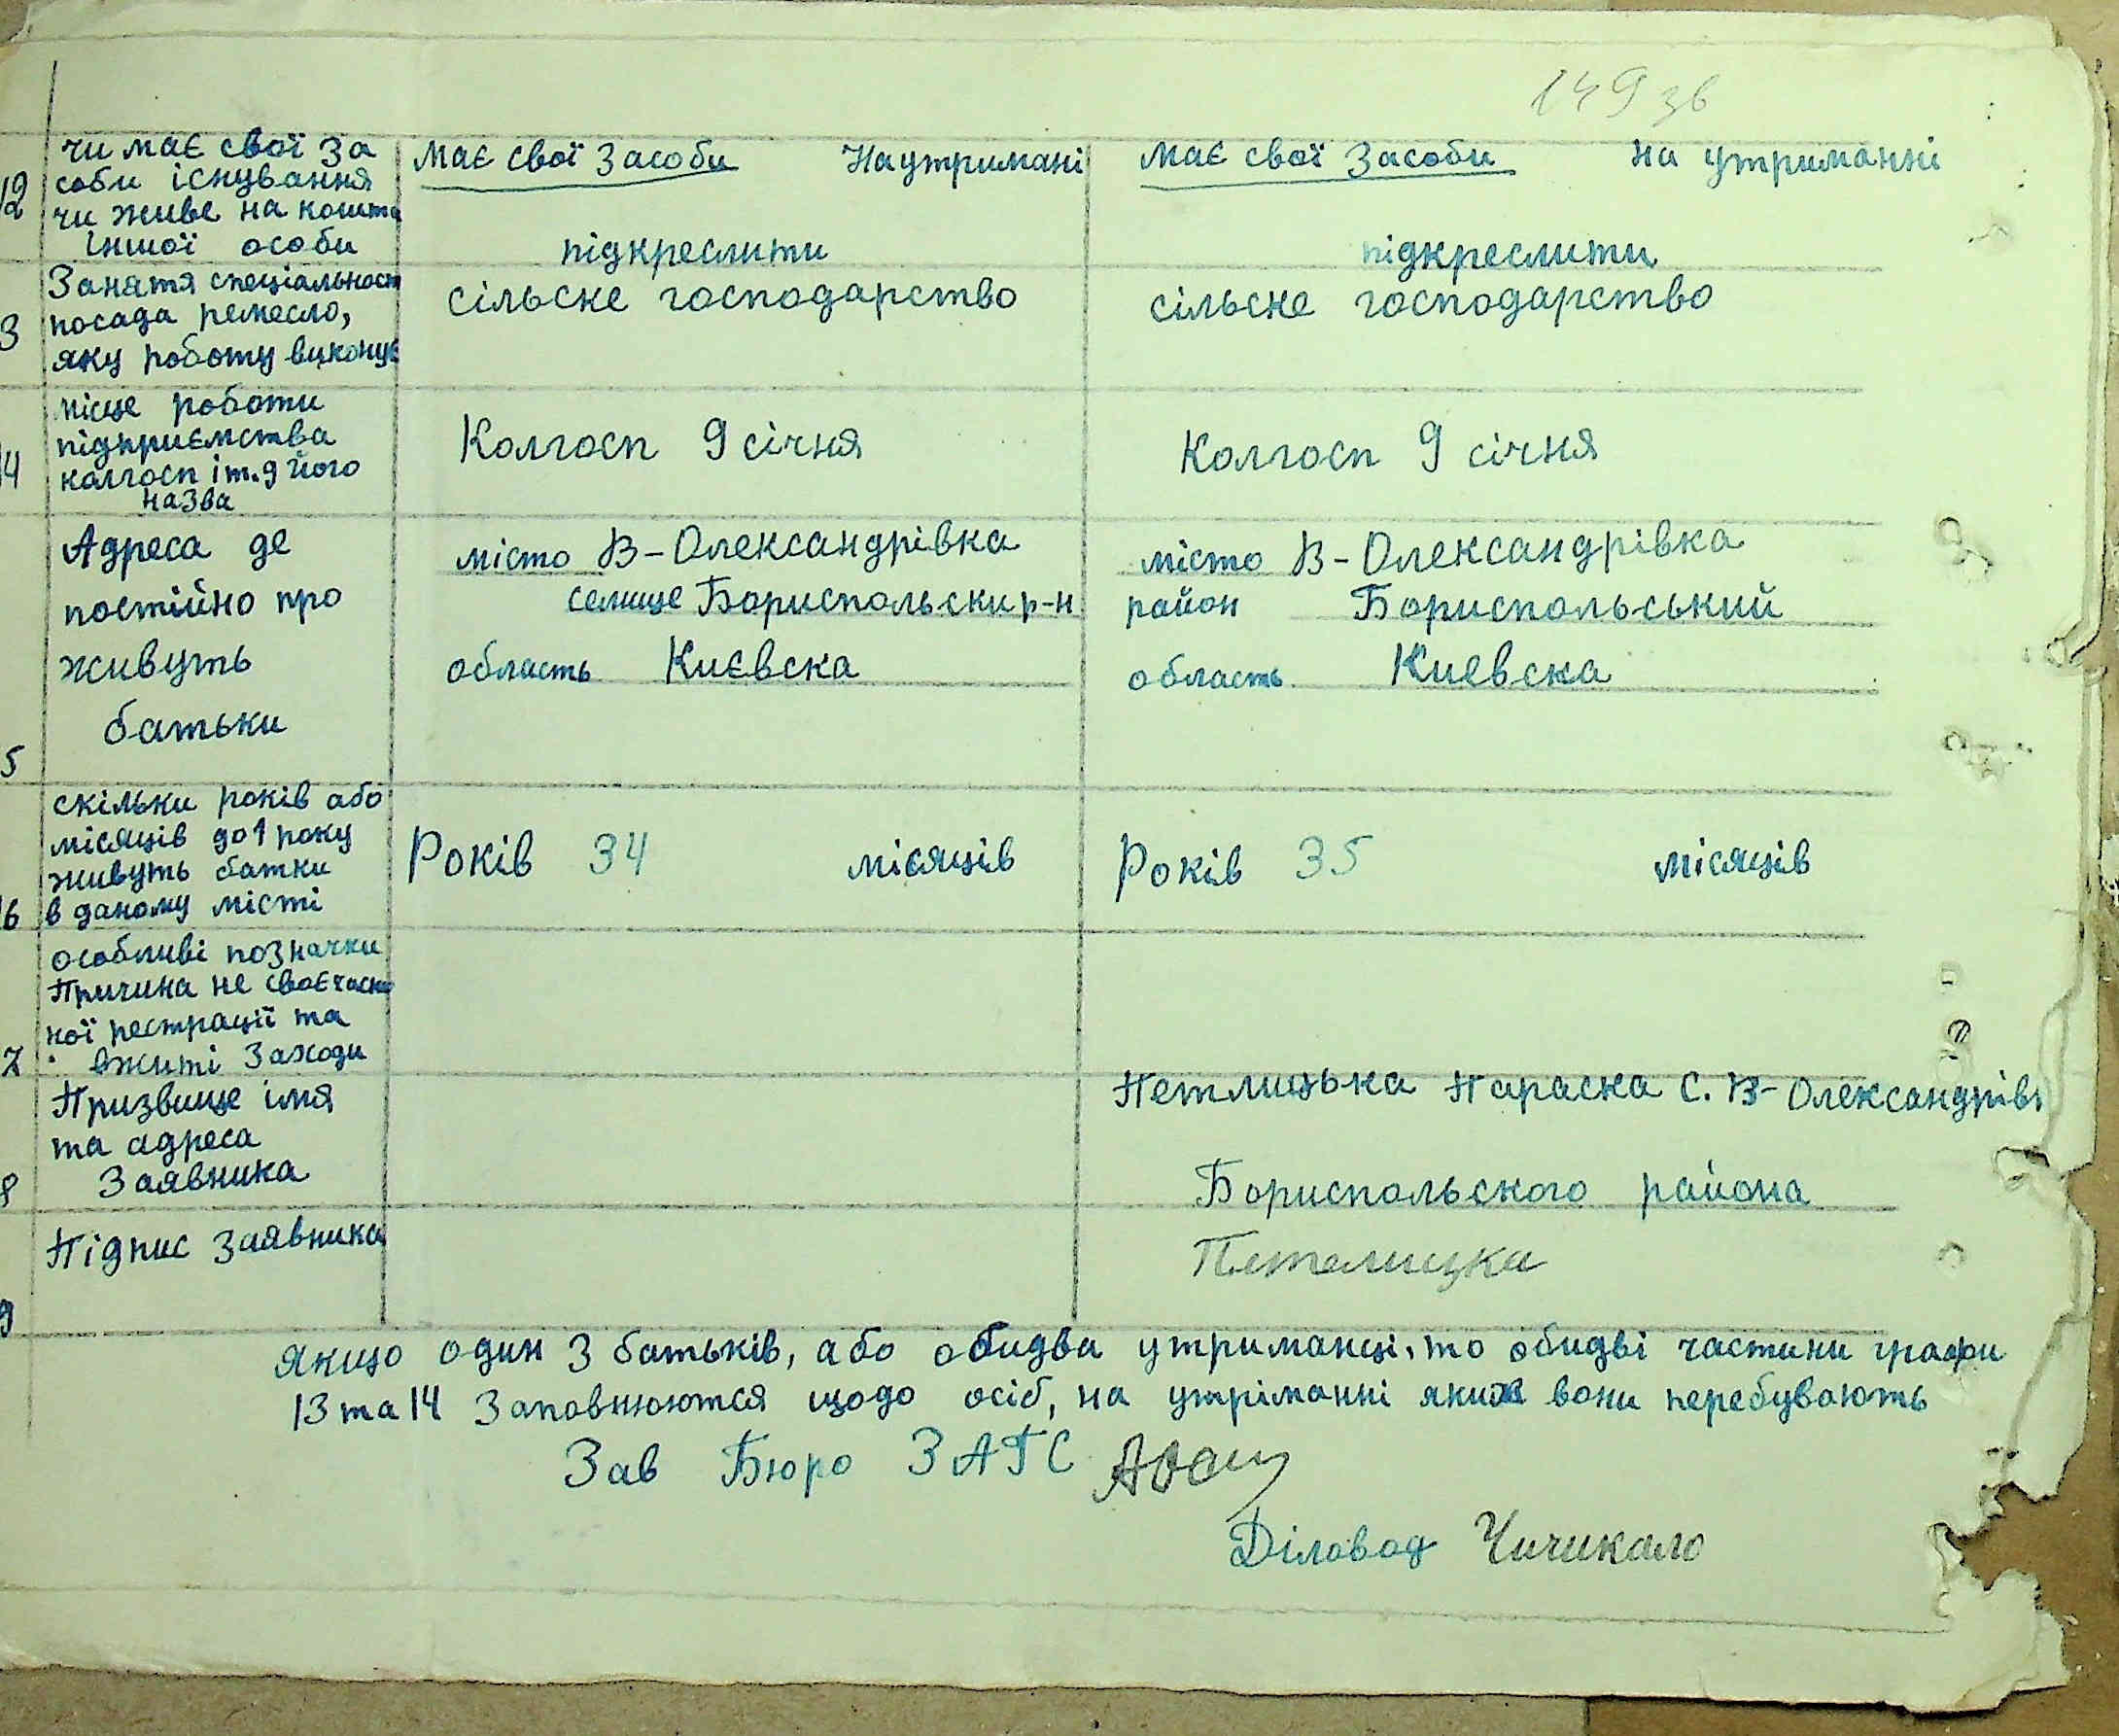 149 зв
12 чи має свої за
соби існування
чи живе на кошта
іншої особи
Має свої засоби На утримані
підкреслити
має свої засоби на утриманні
підкреслити
3 Занятя спеціальност
посада ремесло,
яку роботу виконує
сільске господарство
сільске господарство
14 місце роботи
підприємства
колгосп і т.д його
назва
Колгосп 9 січня
Колгосп 9 січня
5 Адреса де
постійно про
живуть
батьки
місто В-Олександрівка
селище Бориспольски р-н
область Києвска
місто В-Олександрівка
район Бориспольський
область Киевска
16 скільки років або
місяців до 1 року
живуть батки
в даному місті
Років 34 місяців
Років 35 місяців
7 особливі позначки
Причина не своєчасно
ної рестрації та
вжиті заходи
8 Призвище імя
та адреса
Заявника
Петлицька Параска с. В-Олександрів
Бориспольского района
9 Підпис заявника
Петлицка
якщо один з батьків, або обидва утриманці, то обидві частини графи
13 та 14 заповнюются щодо осіб, на утріманні яких вони перебувають
Зав Бюро ЗАГС
Діловод Чичикало